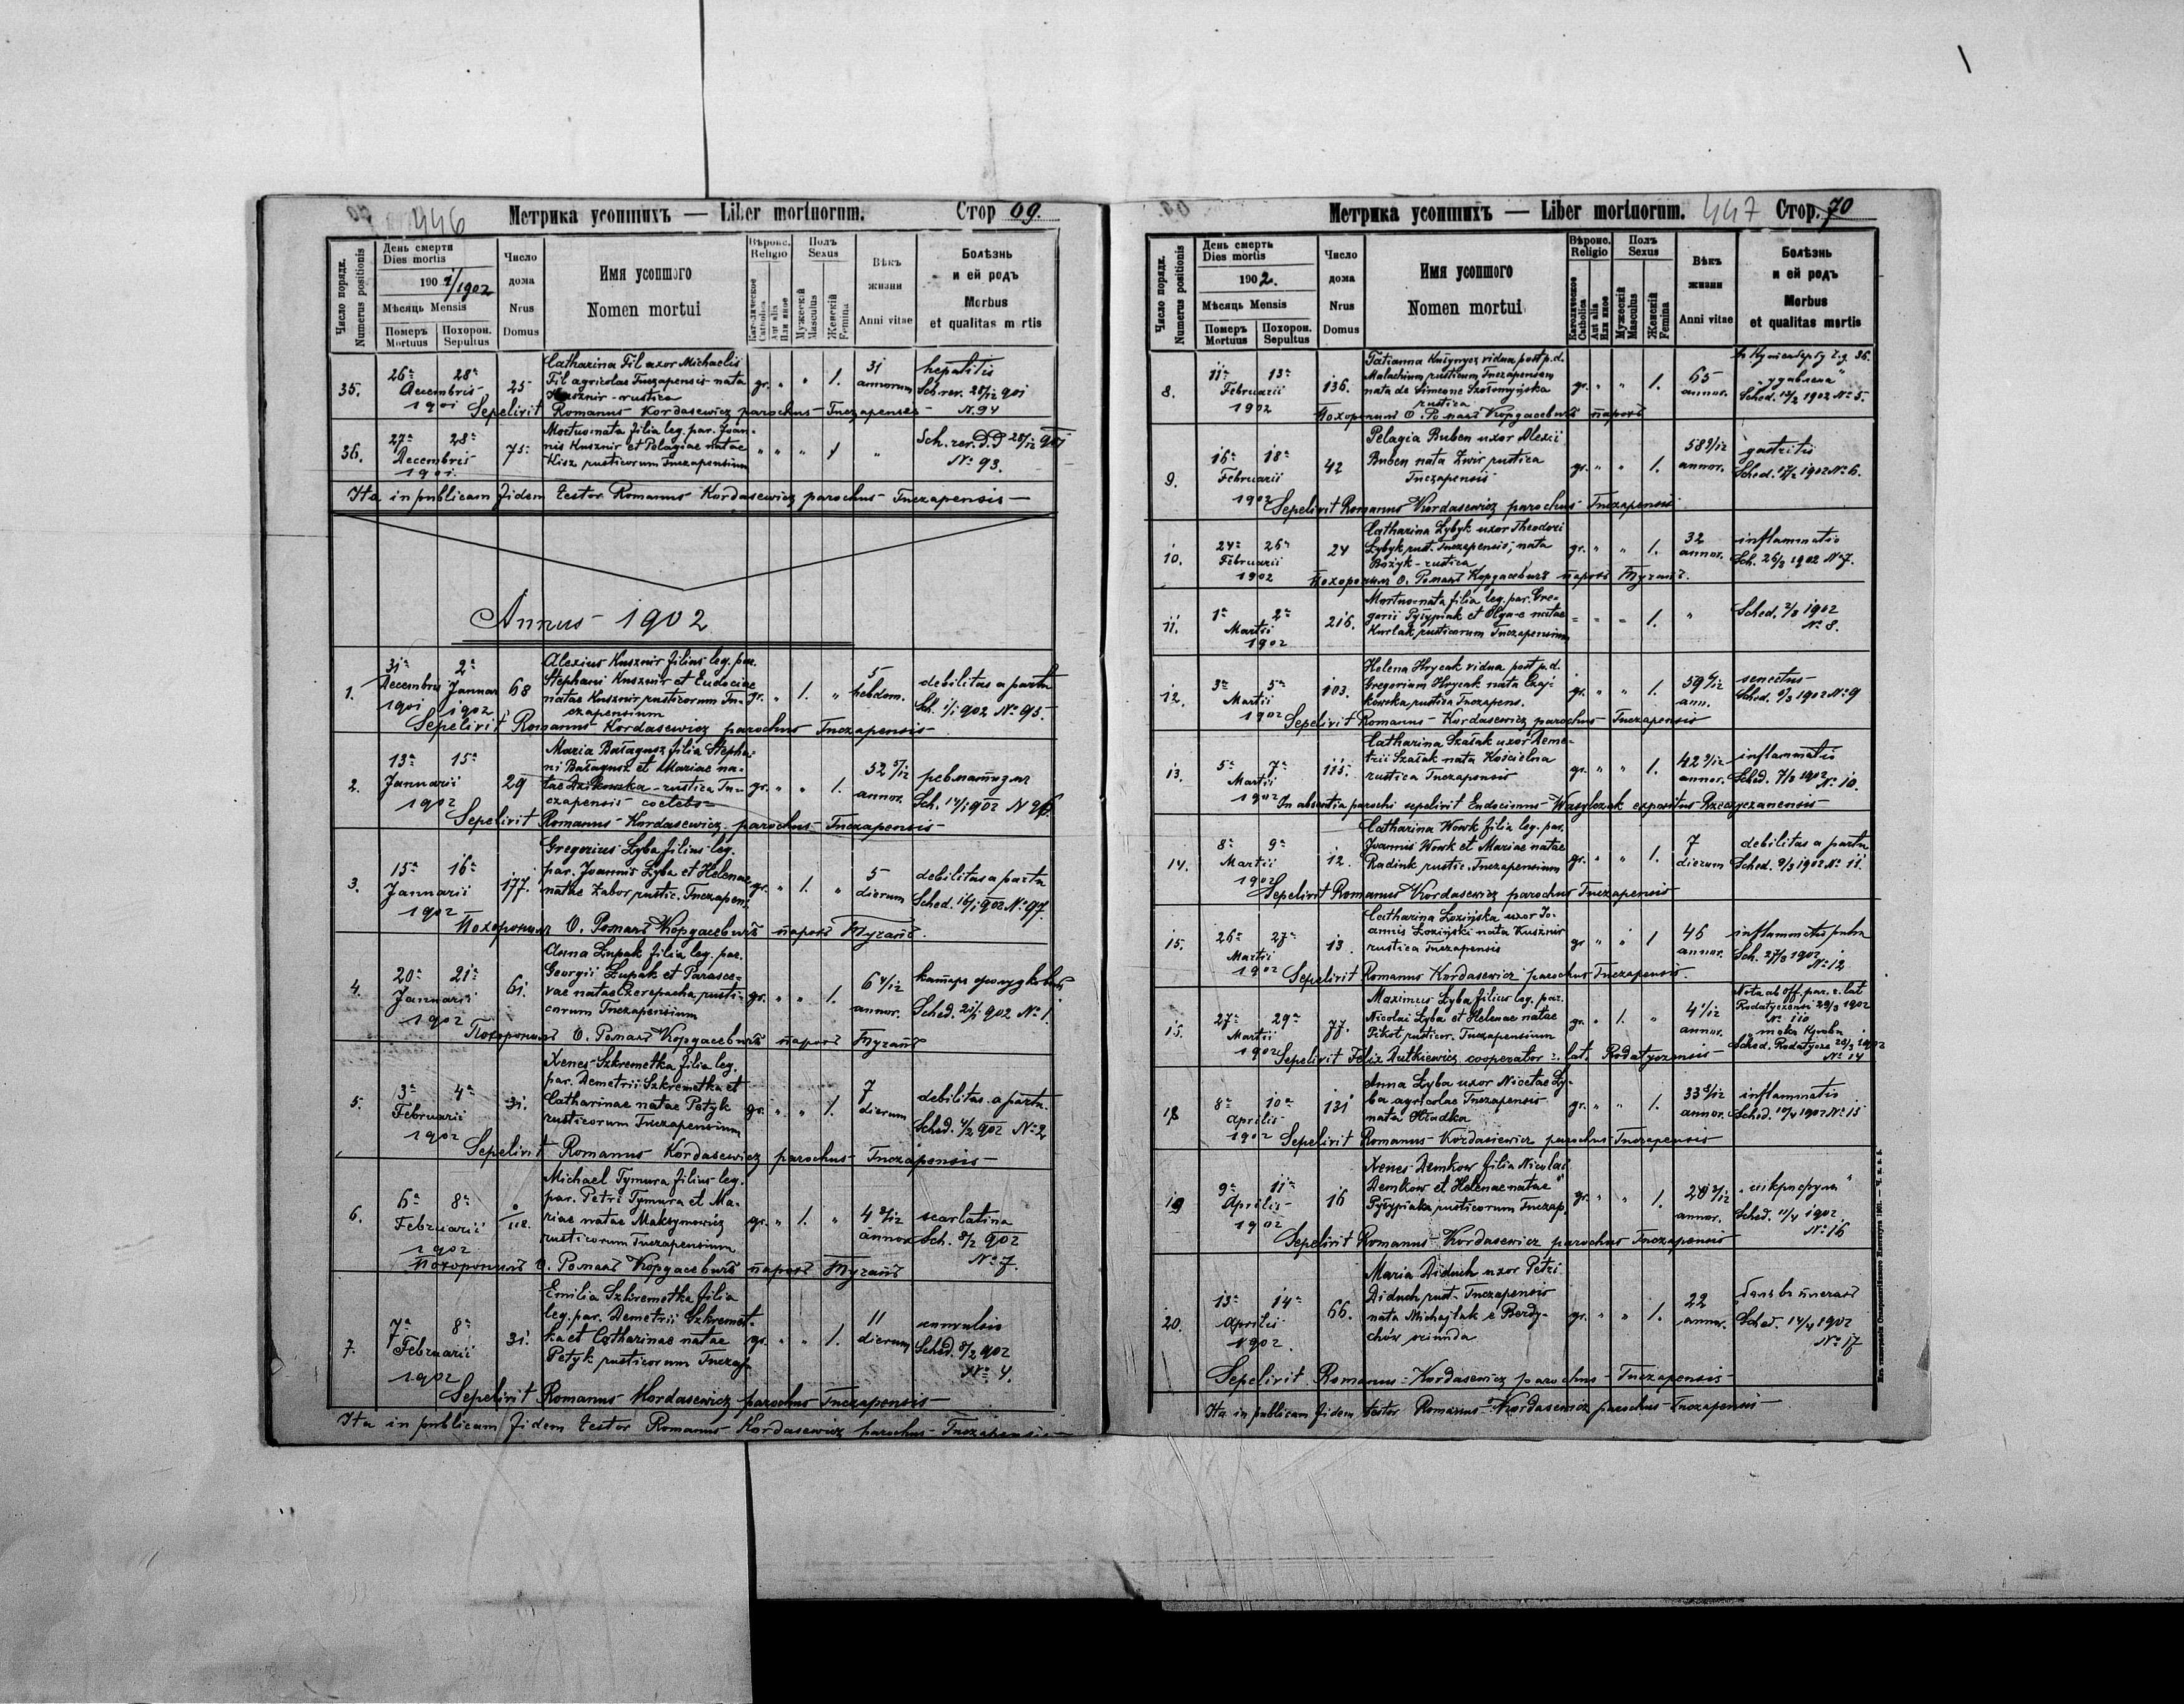 446
Метрика усопшихъ — Liber mortuorum.
Стор 69.
Число порядк.
Numerus positionis
День смерти
Dies mortis
190 1/1902
Мѣсяць Mensis
Померъ
Mortuus
Похорон.
Sepultus
Число
дома
Nrus
Domus
Имя усопшого
Nomen mortui
Вѣроис.
Religio
Католическое
Catholica
Aut alia
Или иное
Полъ
Sexus
Мужескій
Masculus
Женскій
Femina
Вѣкъ
жизни
Anni vitae
Болѣзнь
и ей родъ
Morbus
et qualitas mortis
35. 26a 28a Decembris 1901 25
Catharina Fil uxor Michaelis
Fil agricolae Tuczapensis nata
Kusznir - rustica
gr. " " 1.
31 annorum
hepatitis
Sch. rev. 28/12 901
N. 94
Sepelivit Romanus Kordasewicz parochus Tuczapensis
36. 27a 28a Decembris 1901. 75.
Mortuo nata filia leg. par. Joan-
nis Kusznir et Pelagiae natae
Kisz rusticorum Tuczapensium
" " " 1 "
28/12 901
No 93.
Ita in publicam fidem testor Romanus Kordasewicz parochus Tuczapensis
Annus 1902
1. 31a Decembris 1901 2a Januar 1902 68
Alexius Kusznir filius leg. par.
Stephani Kusznir et Eudociae
natae Kusznir rusticorum Tu-
czapensium
gr. " 1. "
5 hebdom.
debilitas a partu
Sch. 1/1 902 No 95.
Sepelivit Romanus Kordasewicz parochus Tuczapensis
2. 13a 15a Januarii 1902 29
Maria Bałagusz filia Stepha-
ni Bałagusz et Mariae na-
tae Dzikowska - rustica Tu-
czapensis coelebs
gr. " " 1.
52 5/12 annor.
ревматизм
Sch. 14/1 902 N 96.
Sepelivit Romanus Kordasewicz parochus Tuczapensis
3. 15a 16a Januarii 1902 177.
Gregorius Łyba filius leg.
par. Joannis Łyba et Helenae
natae Zabor rustic. Tuczapens.
gr. " 1. "
5 dierum
debilitas a partu
Sched. 16/1 902 No 97.
Похоронилъ О. Романъ Кордасевичъ парохъ Тучапъ.
4. 20a 21a Januarii 1902 61.
Anna Łupak filia leg. par.
Georgii Łupak et Parasce-
vae natae Czerepacha rusti-
corum Tuczapensium
gr. " " 1.
6 4/12 annor.
Sched. 21/1 902 No 1.
Похоронилъ О. Романъ Кордасевичъ парохъ Тучапъ
5. 3a 4a Februarii 1902 31.
Xenes Szkremetka filia leg.
par. Demetrii Szkremetka et
Catharinae natae Petyk
rusticorum Tuczapensium
gr. " " 1.
7 dierum
debilitas a partu.
Sched. 4/2 902 No 2
Sepelivit Romanus Kordasewicz parochus Tuczapensis
6. 6a 8a Februarii 1902
Michael Tymura filius leg.
par. Petri Tymura et Ma-
riae natae Maksymowicz
rusticorum Tuczapensium
gr. " 1. "
4 annor
scarlatina
Sch. 8/2 902
No 7.
Похоронилъ О. Романъ Кордасевичъ парохъ Тучапъ
7. 7a 8a Februarii 1902 31.
Emilia Szkremetka filia
leg. par. Demetrii Szkremet-
ka et Catharinae natae
Petyk rusticorum Tuczap
gr. " " 1.
11 dierum
Sched. 8/2 902
No 4.
Sepelivit Romanus Kordasewicz parochus Tuczapensis
Ita in publicam fidem testor Romanus Kordasewicz parochus Tuczapensis
Метрика усопшихъ — Liber mortuorum.
447
Стор. 70
Число порядк.
Numerus positionis
День смерть
Dies mortis
1902.
Мѣсяць Mensis
Померъ
Mortuus
Похорон.
Sepultus
Число
дома
Nrus
Domus
Имя усопшого
Nomen mortui
Вѣроис.
Religio
Католическое
Catholica
Aut alia
Или иное
Полъ
Sexus
Мужескій
Masculus
Женскій
Femina
Вѣкъ
жизни
Anni vitae
Болѣзнь
и ей родъ
Morbus
et qualitas mortis
8. 11a 13a Februarii 1902 136.
Tatianna Kuzynycz vidua post p.d.
Malachium rusticum Tuczapensem
nata de Simeone Szołomyńska
rustica
gr. " " 1.
65 annor.
"удавлена"
Sched. 13/2 1902 No 5.
Похоронилъ О. Романъ Кордасевичъ парохъ
9. 16a 18a Februarii 1902 42
Pelagia Buben uxor Alexii
Buben nata Zwir rustica
Tuczapensis
gr. " " 1.
58 annor.
gastritis
Sched. 17/2 1902 No 6.
Sepelivit Romanus Kordasewicz parochus Tuczapensis
10. 24a 26a Februarii 1902 24
Catharina Łybyk uxor Theodori
Łybyk rust. Tuczapensis, nata
Bożyk - rustica
gr. " " 1.
32 annor.
inflammatio
Sch. 1902 No 7.
Похоронилъ О. Романъ Кордасевичъ парохъ Тучапъ.
11. 1a 2a Martii 1902 216.
Mortuo nata filia leg. par. Gre-
gorii Pyrypiak et Olgae natae
Kurlak rusticorum Tuczapensium
1. "
Sched. 2/3 1902
No 8.
12. 3a 5a Martii 1902 103.
Helena Hrycak vidua post p.d.
Gregorium Hrycak nata Czaj-
kowska rustica Tuczapens.
gr. " " 1.
59 ann.
senectus
Sched. 1902 No 9
Sepelivit Romanus Kordasewicz parochus Tuczapensis
13. 5a 7a Martii 1902 115.
Catharina Szałak uxor Deme-
trii Szałak nata Kościelna
rustica Tuczapensis
gr. " " 1.
42 annor.
inflammatio
Sched. 7/3 1902
No 10.
In absentia parochi sepelivit Eudocimus Wasylczak expositus Rzeczyczanensis
14. 8a 9a Martii 1902 12.
Catharina Wowk filia leg. par.
Joannis Wowk et Mariae natae
Radink rustic. Tuczapensium
gr. " " 1.
7 dierum
debilitas a partu
Sched. 9/3 1902 No 11.
Sepelivit Romanus Kordasewicz parochus Tuczapensis
15. 26a 27a Martii 1902 13
Catharina Łozińska uxor Jo-
annis Łoziński nata Kusznir
rustica Tuczapensis
gr " " 1
46 annor.
Sch. 27/3 1902
No 12
Sepelivit Romanus Kordasewicz parochus Tuczapensis.
27a 29a Martii 1902 77.
Maximus Łyba filius leg. par.
Nicolai Łyba et Helenae natae
Pikot rusticor. Tuczapensium
gr. " 1. "
4 1/12 annor.
Nota ab Off. par. r. lat
Rodatyczensi 29/3 1902
No 110
Sched. Rodatycze 28/3 1902
No 14
Sepelivit Felix Dutkiewicz cooperator r. lat. Rodatyczensis
18 8a 10a Aprilis 1902 131
Anna Łyba uxor Nicetae Ły-
ba agricolae Tuczapensis
nata Hładka
gr. " " 1.
33 annor.
inflammatio
Sched. 10/4 1902 No 15
Sepelivit Romanus Kordasiewicz parochus Tuczapensis
19 9a 11a Aprilis 1902 16
Xenes Demkow filia Nicolai
Demkow et Helenae natae
Pyrypiaka rusticorum Tuczap.
gr. " " 1.
annor.
Sched. 11/4 1902
No 16
Sepelivit Romanus Kordasewicz parochus Tuczapensis
20. 13a 14a Aprilis 1902. 66.
Maria Diduch uxor Petri
Diduch rust. Tuczapensis
nata Michajlak e Berdy-
chów oriunda
gr. " " 1.
22 annor.
Sched. 14/4 1902
No 17
Sepelivit Romanus Kordasewicz parochus Tuczapensis
Ita in publicam fidem testor Romanus Kordasewicz parochus Tuczapensis